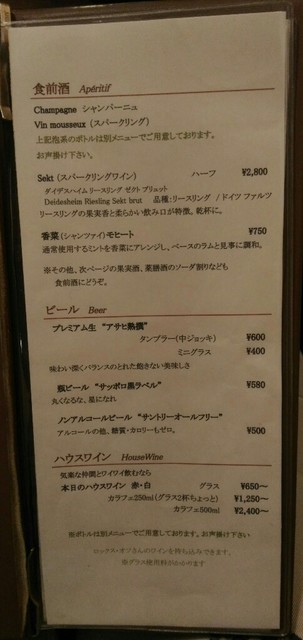 食前酒 Apéritif
Champagne シャンパーニュ
Vin mousseux (スパークリング)
上記泡系のボトルは別メニューでご用意しております。
お声掛け下さい。
Sekt (スパークリングワイン) ハーフ ¥2,800
ダイデスハイム リースリング ゼクト ブリュット
Deidesheim Riesling Sekt brut 品種:リースリング / ドイツ ファルツ
リースリングの果実香と柔らかい飲み口が特徴。乾杯に。
香菜(シャンツァイ)モヒート ¥750
通常使用するミントを香菜にアレンジし、ベースのラムと見事に調和。
※その他、次ページの果実酒、薬膳酒のソーダ割りなども
食前酒にどうぞ。
ビール Beer
プレミアム生 "アサヒ熟撰"
タンブラー(中ジョッキ) ¥600
ミニグラス ¥400
味わい深くバランスのとれた飽きない美味しさ
瓶ビール "サッポロ黒ラベル" ¥580
丸くなるな、星になれ
ノンアルコールビール "サントリーオールフリー"
アルコールの他、糖質・カロリーもゼロ。 ¥500
ハウスワイン HouseWine
気楽な仲間とワイワイ飲むなら
本日のハウスワイン 赤・白 グラス ¥650～
カラフェ250ml(グラス2杯ちょっと) ¥1,250～
カラフェ500ml ¥2,400～
※ボトルは別メニューでご用意しております。お声掛け下さい
ロックス・オフさんのワインを持ち込みできます。
※グラス使用料がかかります